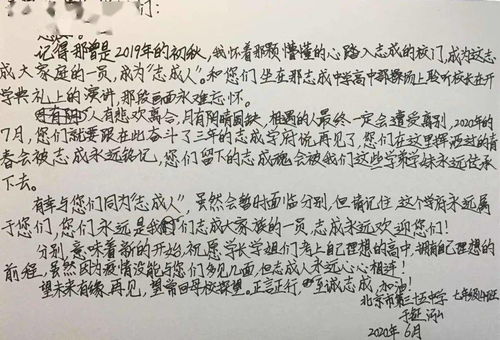 们：
记得那曾是2019年的初秋，我怀着那颗懵懂的心踏入志成的校门，成为这志
成大家庭的一员，成为“志成人”。和您们坐在那志成中学高中部操场上聆听校长在开
学典礼上的演讲，那段画面永难忘怀。
人有悲欢离合，月有阴晴圆缺，相遇的人最终一定会遭受离别，2020年的
7月，您们就要跟在此奋斗了三年的志成学府说再见了，您们在这里挥洒过的青
春会被志成永远铭记，您们留下的志成魂会被我们这些学弟学妹永远传承
下去。
有幸与您们同为“志成人”，虽然会暂时面临分别，但请记住，这个学府永远属
于您们，您们永远是我们志成大家族的一员，志成永远欢迎您们！
分别，意味着新的开始，祝愿学长学姐们考上自己理想的高中，拥有自己理想的
前程，虽然因为疫情没能与您们多见几面，但志成人永远心心相连！
望未来有缘再见，望常回母校探望。正言正行，至诚志成，加油！
北京市第三十五中学 七年级4班
于
2020年6月